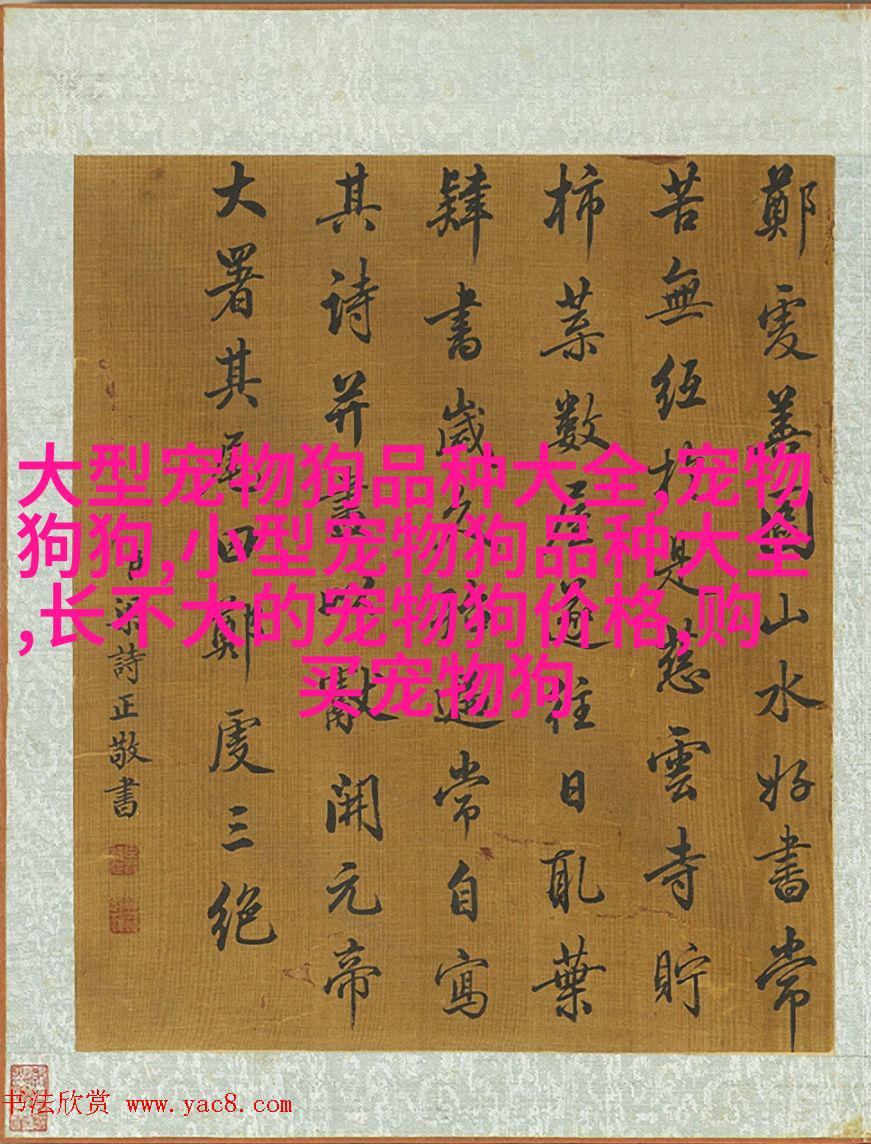 大型宠物狗品种大全,宠物
狗狗,小型宠物狗品种大全
,长不大的宠物狗价格,购
买宠物狗
鄭虔善圖山水好書常
苦無紙於是慈雲寺貯
柿葉數屋遂往日取葉
肄書歲久殆遍常自寫
其詩并畫以獻開元帝
大署其尾曰鄭虔三絕
臣梁詩正敬書
书法欣赏 www.yac8.com